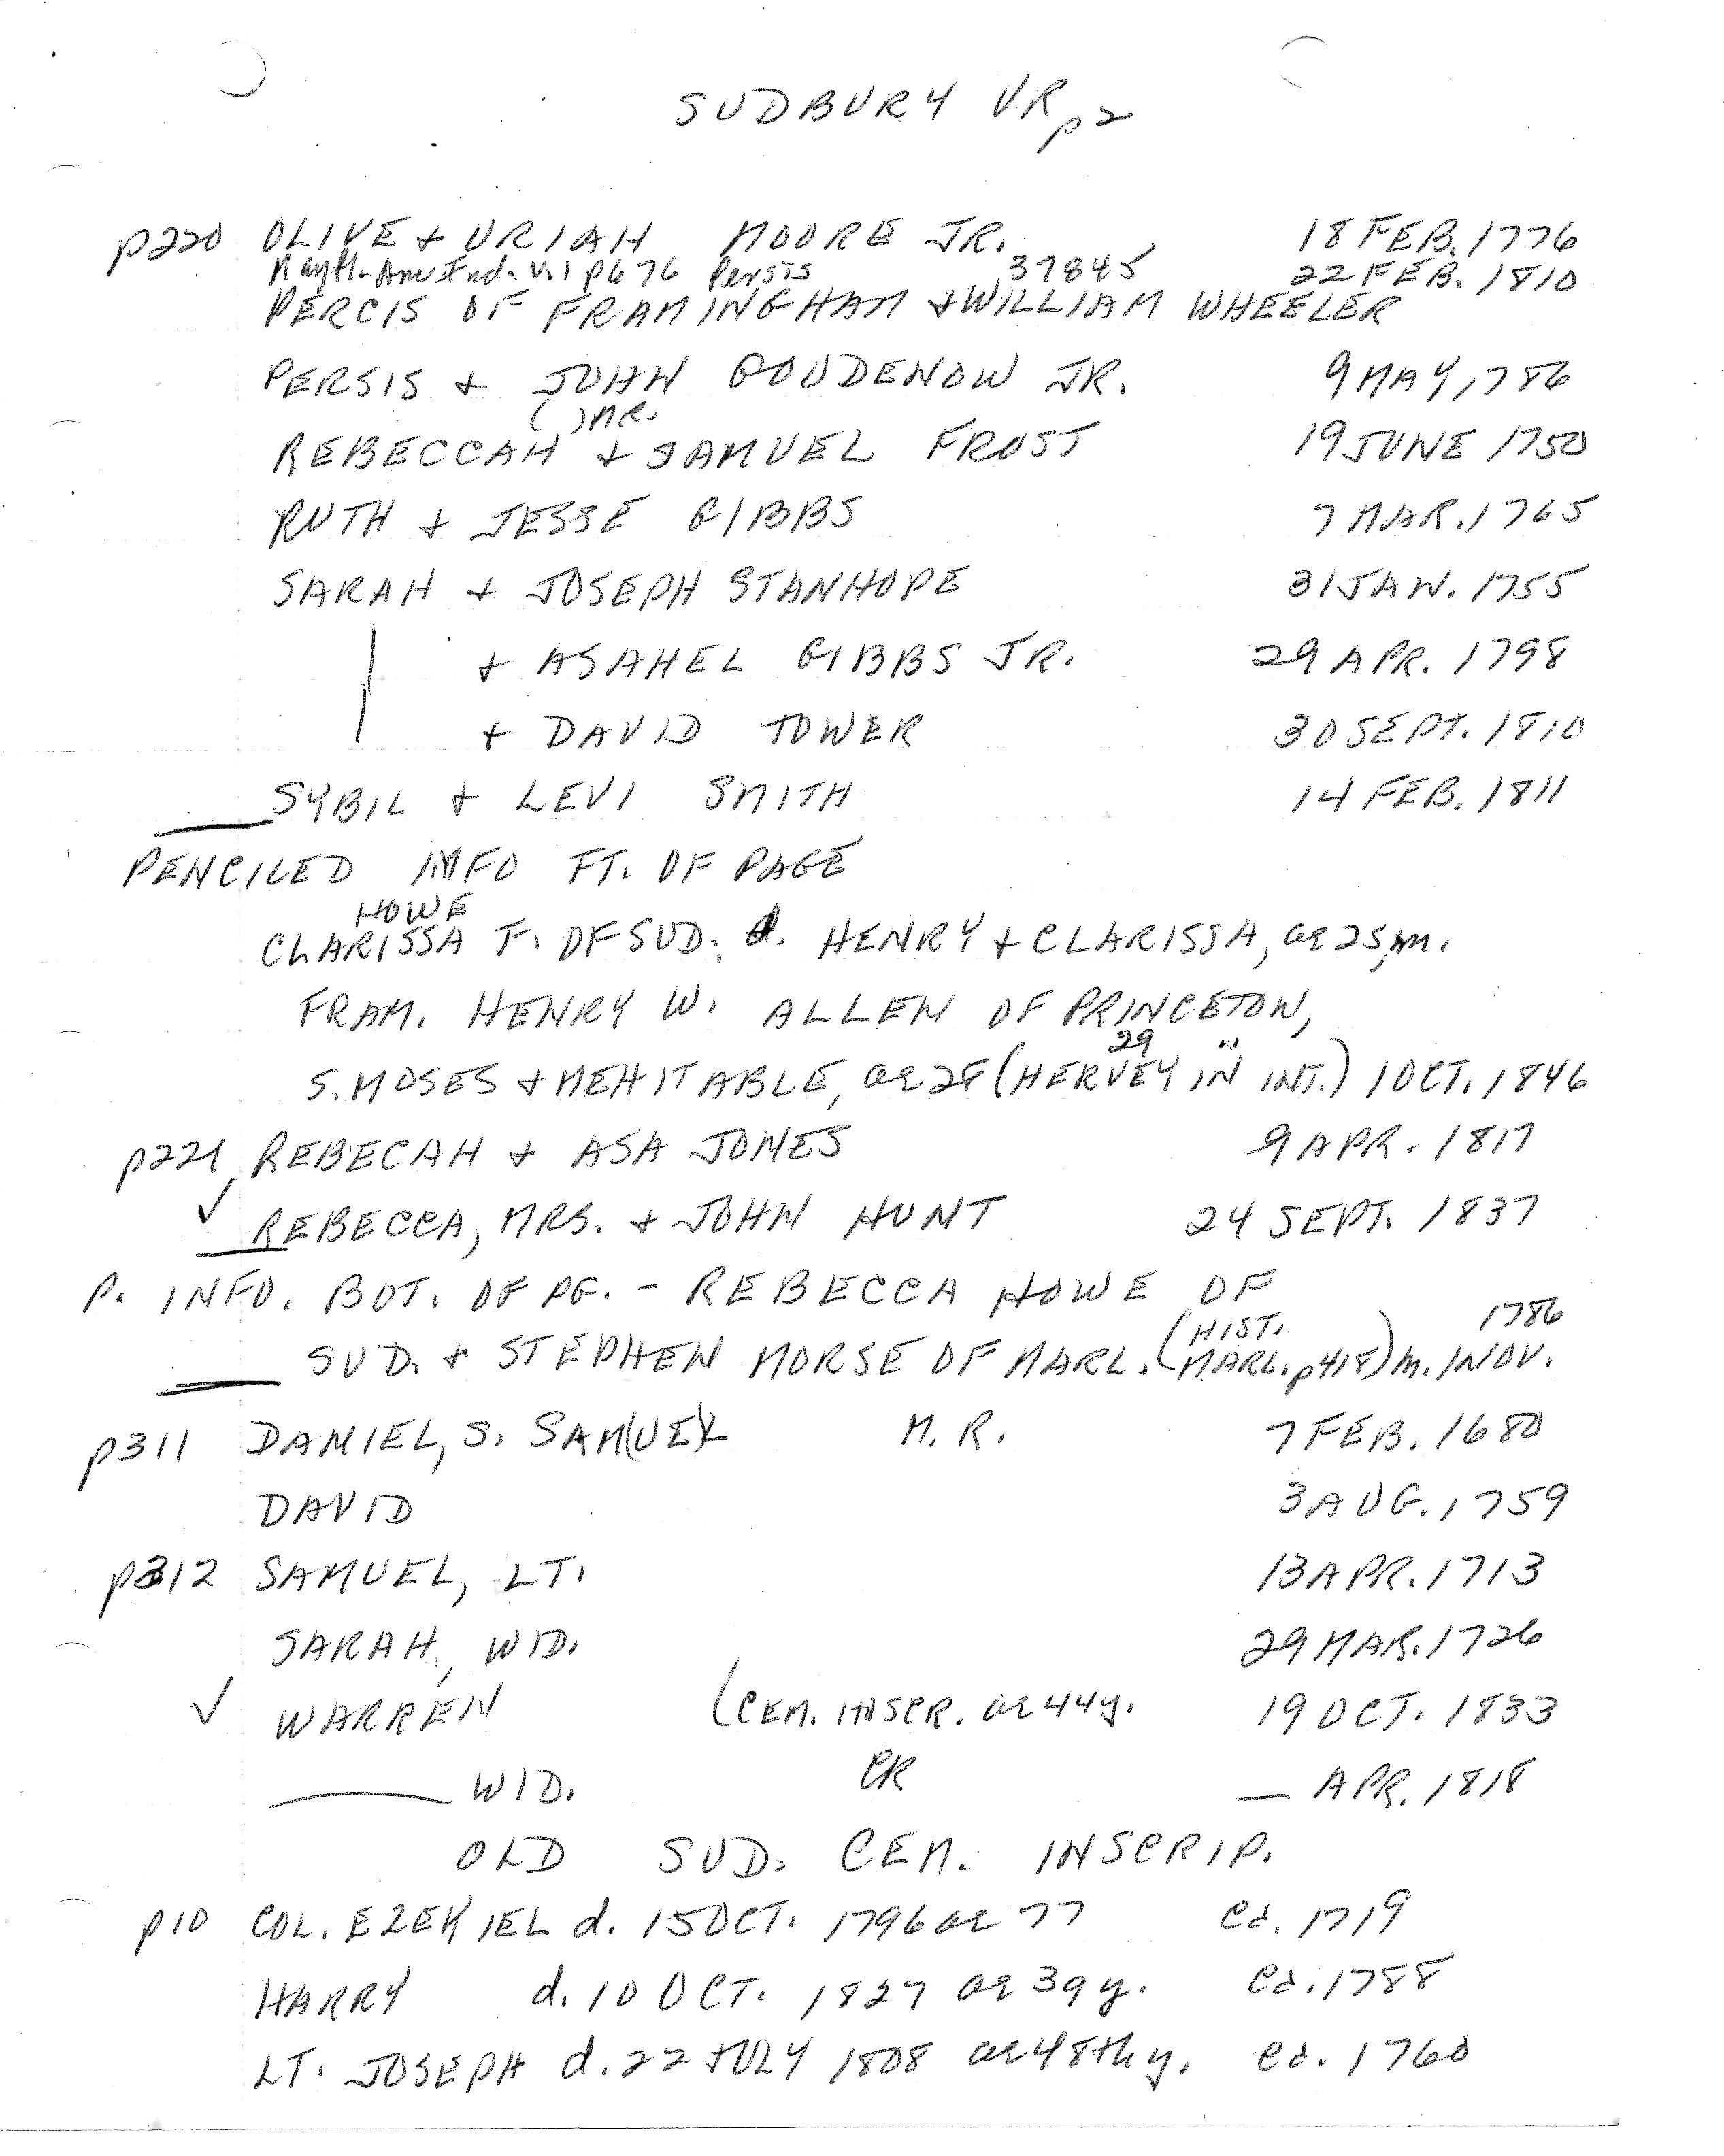 SUDBURY VR p2
p220 OLIVE + URIAH MOORE JR. 18 FEB. 1776
Mayfl- Index V.1 p676 Persis 37845 22 FEB. 1810
PERCIS OF FRAMINGHAM + WILLIAM WHEELER
PERSIS + JOHN GOUDENOW JR. 9 MAY, 1786
( ) MR.
REBECCAH + SAMUEL FROST 19 JUNE 1750
RUTH + JESSE GIBBS 7 MAR. 1765
SARAH + JOSEPH STANHOPE 31 JAN. 1755
+ ASAHEL GIBBS JR. 29 APR. 1798
+ DAVID TOWER 30 SEPT. 1810
SYBIL + LEVI SMITH 14 FEB. 1811
PENCILED INFO FT. OF PAGE
HOWE
CLARISSA F. OF SUD. d. HENRY + CLARISSA, ae 25, m.
FRAM. HENRY W. ALLEN OF PRINCETON,
29 "
S. MOSES + MEHITABLE, ae 28 (HERVEY IN INT.) 1 OCT. 1846
p221 REBECAH + ASA JONES 9 APR. 1817
✓ REBECCA, MRS. + JOHN HUNT 24 SEPT. 1837
P. INFO. BOT. OF PG. - REBECCA HOWE OF
(HIST. 1786
SUD. + STEPHEN MORSE OF MARL. MARL. p418) m. 1 NOV.
p311 DANIEL, S. SAM(UE)L M. R. 7 FEB. 1680
DAVID 3 AUG. 1759
p312 SAMUEL, LT. 13 APR. 1713
SARAH, WID. 29 MAR. 1726
✓ WARREN (CEM. INSCR. ae 44y. 19 OCT. 1833
___ WID. CR — APR. 1818
OLD SUD. CEM. INSCRIP.
p10 COL. EZEKIEL d. 15 OCT. 1796 ae 77 ca. 1719
HARRY d. 10 OCT. 1827 ae 39 y. ca. 1788
LT. JOSEPH d. 22 JULY 1808 ae 48th y. ca. 1760